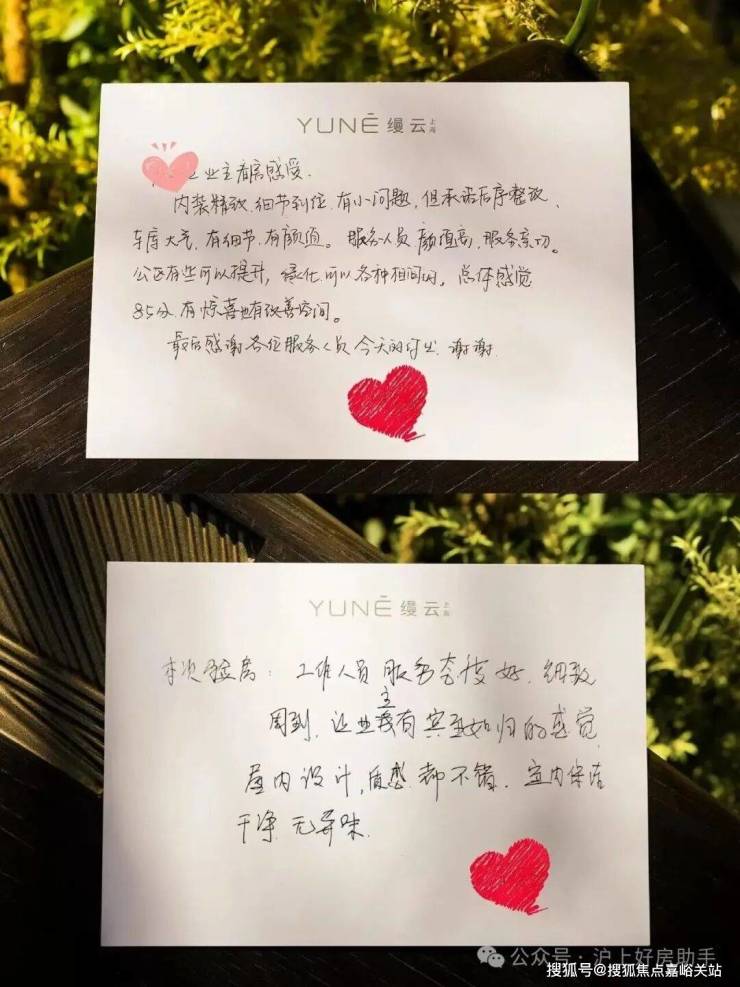 YUNĒ 缦云 上海
业主看房感受.
内装精致.细节到位.有小问题,但承诺后序整改、
车库大气,有细节.有颜值。服务人员颜值高,服务亲切。
公区有些可以提升,绿化.可以各种相间的。总体感觉
85分.有惊喜也有改善空间。
最后感谢各位服务人员今天的付出.谢谢.
YUNĒ 缦云 上海
本次验房:工作人员服务态度好.细致
周到.让业主有宾至如归的感觉
屋内设计,质感都不错.室内保洁
干净 无异味.
公众号·沪上好房助手
搜狐号@搜狐焦点嘉峪关站